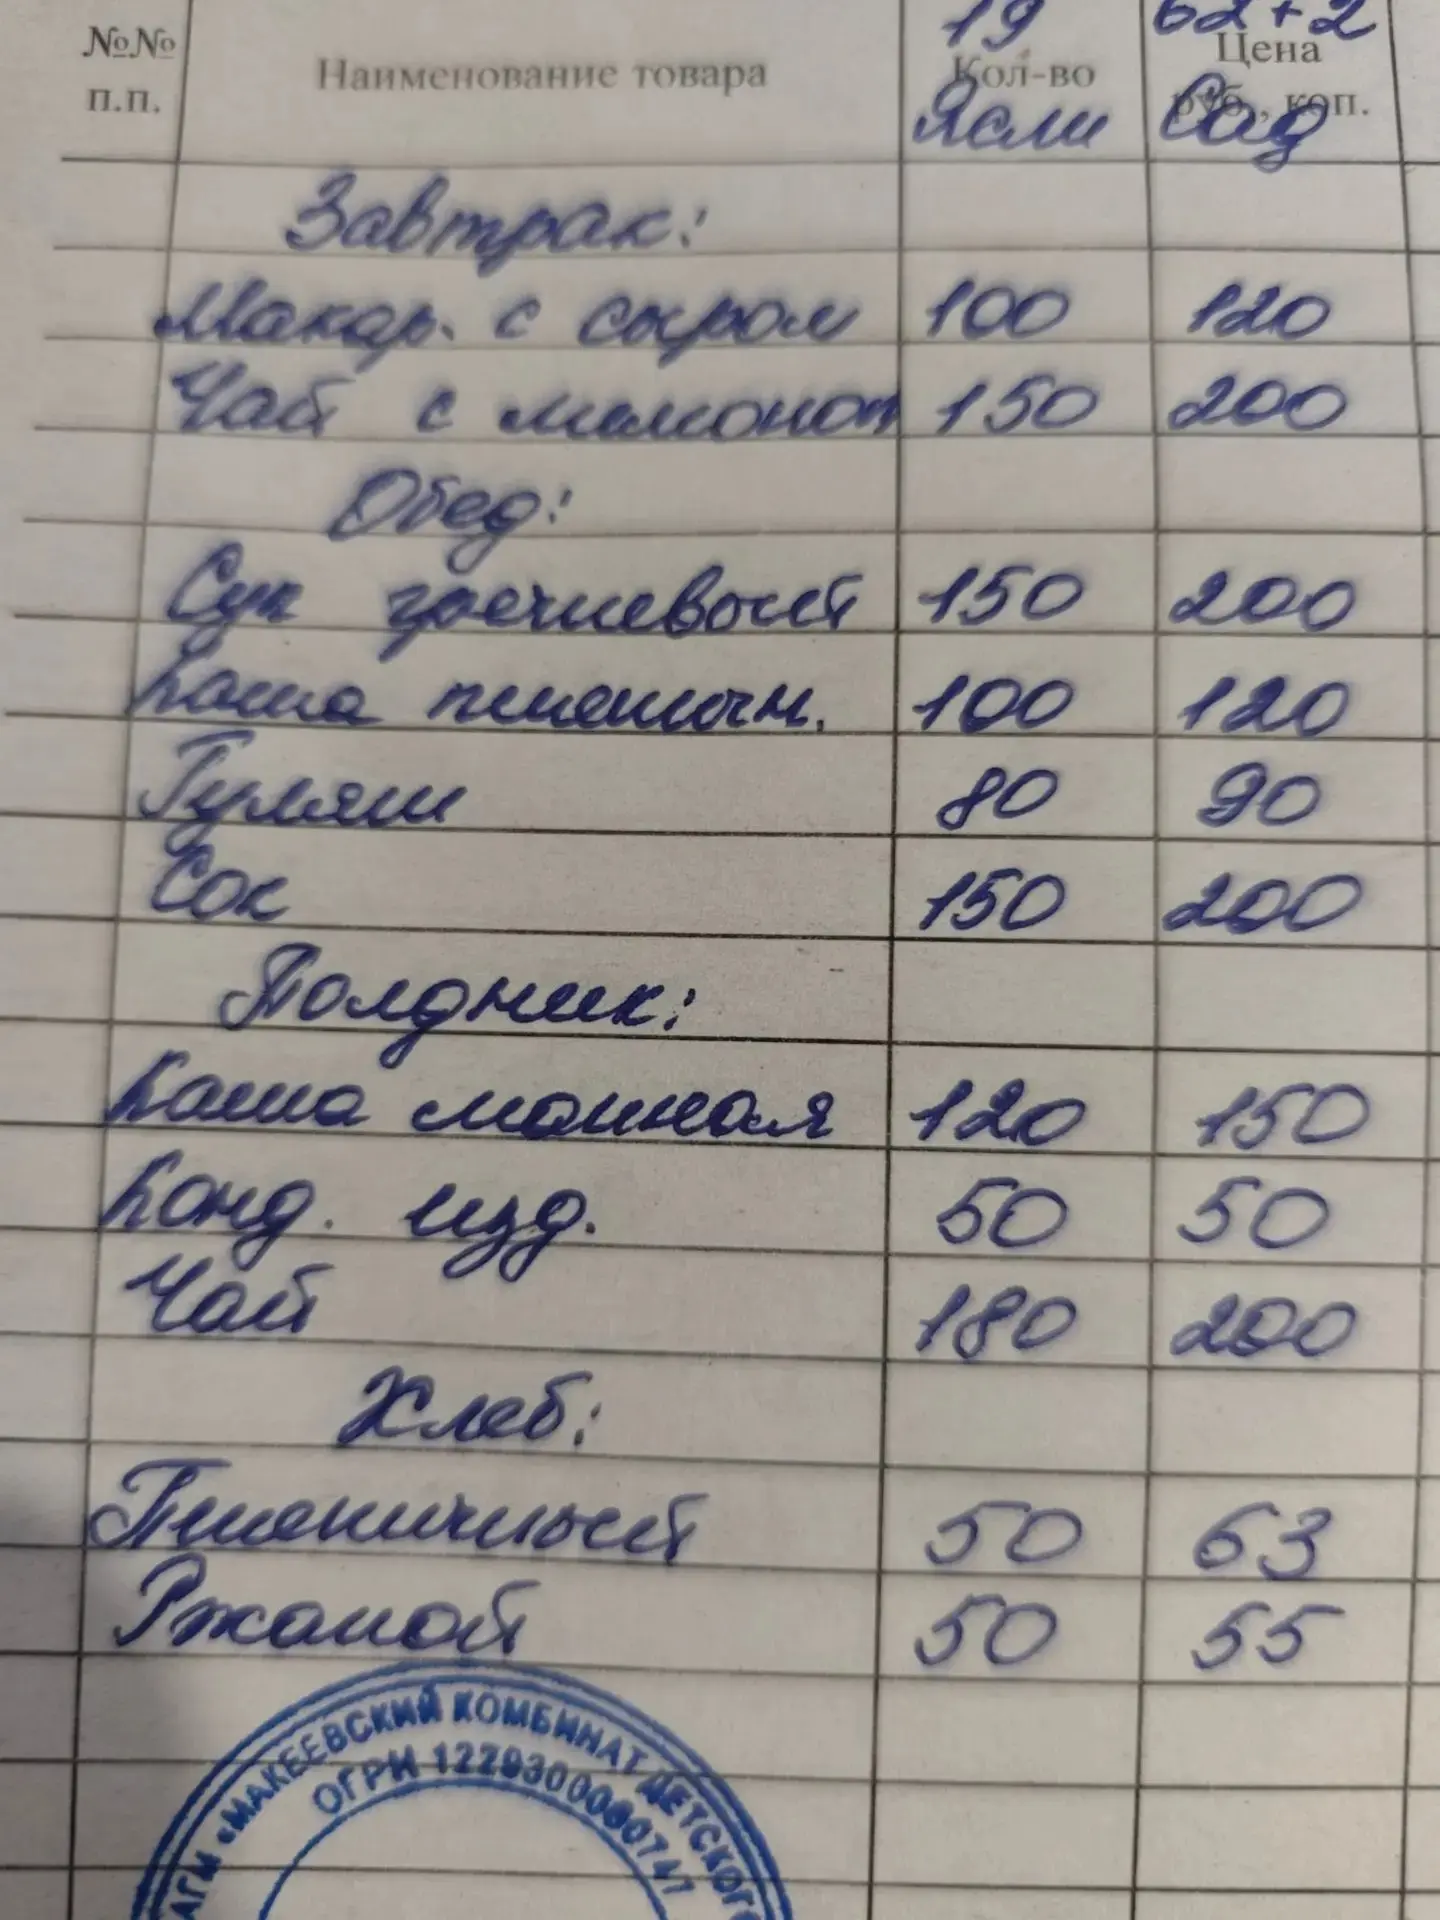 19 62+2
№№ п.п. Наименование товара Кол-во Цена руб., коп.
Ясли Сад
Завтрак:
Макар. с сыром 100 120
Чай с лимоном 150 200
Обед:
Суп гречневый 150 200
Каша пшеничн. 100 120
Гуляш 80 90
Сок 150 200
Полдник:
Каша манная 120 150
Конд. изд. 50 50
Чай 180 200
Хлеб:
Пшеничный 50 63
Ржаной 50 55
АГМ «МАКЕЕВСКИЙ КОМБИНАТ ДЕТСКОГО
ОГРН 1229300060747